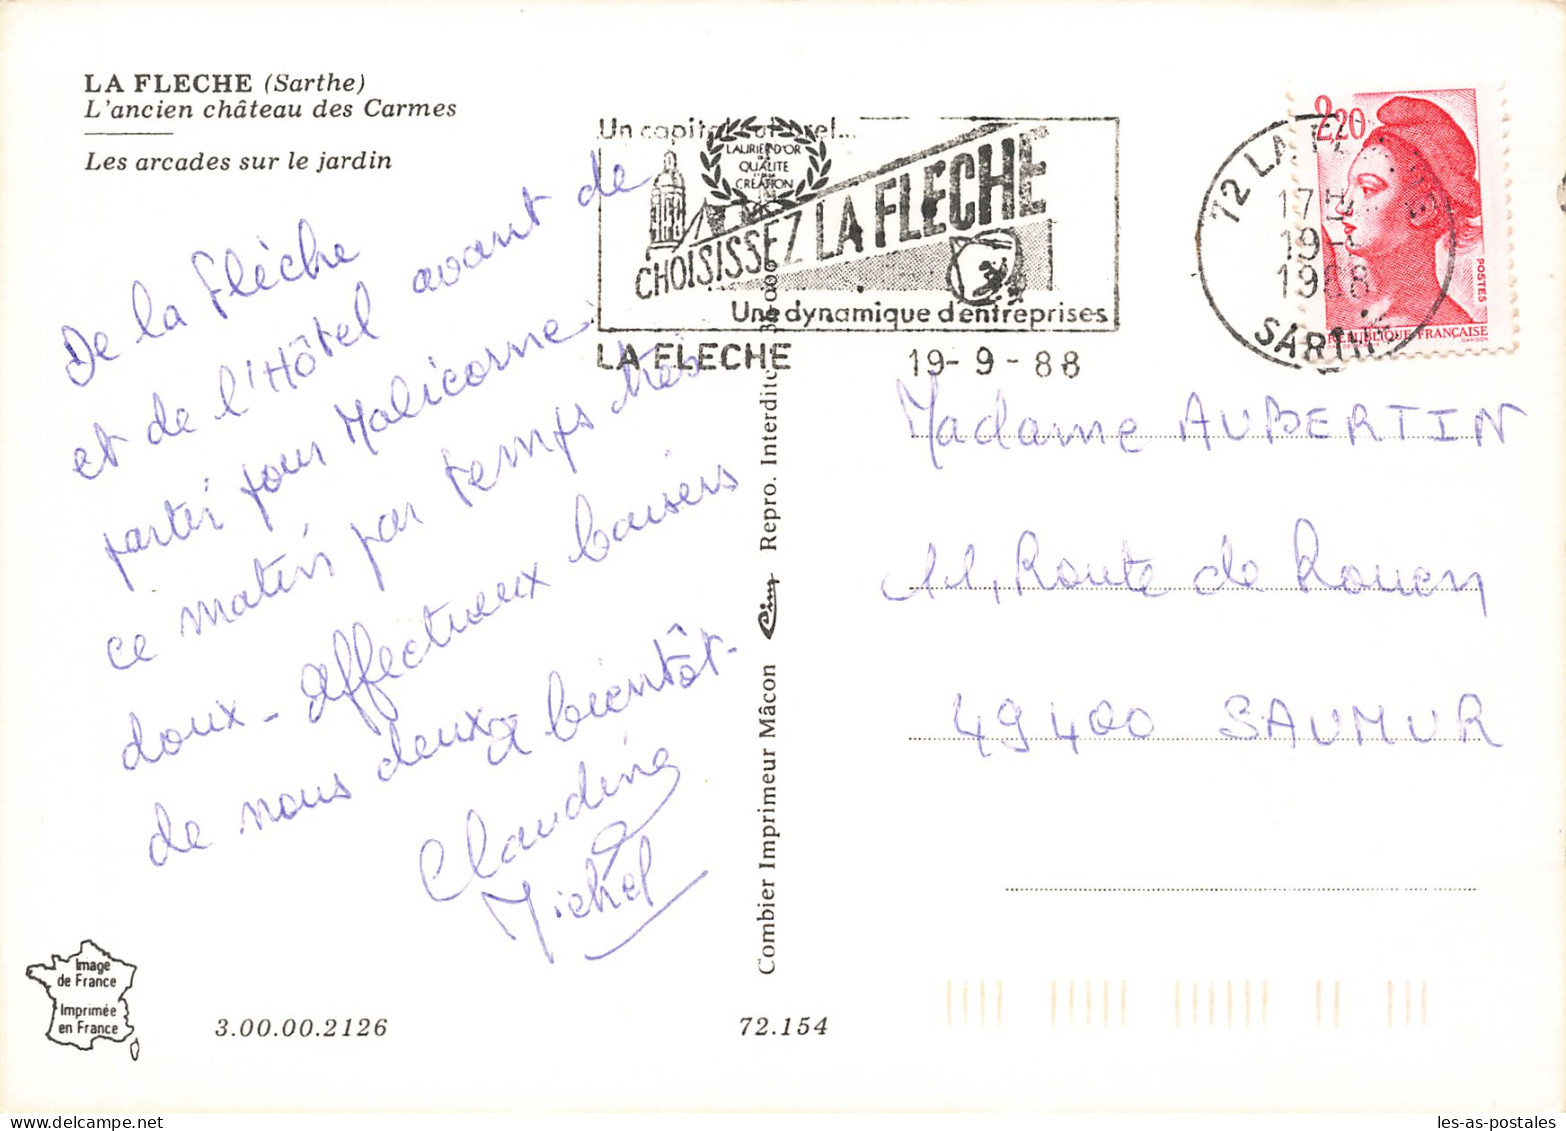 LA FLECHE (Sarthe)
L'ancien château des Carmes
Les arcades sur le jardin
De la Flèche
et de l'Hôtel avant de
partir pour Malicorne
ce matin par temps très
doux - affectueux baisers
de nous deux à bientôt -
Claudine
Michel
Image
de France
Imprimée
en France
3.00.00.2126
72.154
Combier Imprimeur Mâcon Cim Repro. Interdite
Un capital
LAURIER D'OR
QUALITE
CREATION
CHOISISSEZ LA FLECHE
Une dynamique d'entreprises
LA FLECHE 19-9-88
72 LA FLECHE
17H
19-
1988
SARTHE
2,20
POSTES
REPUBLIQUE FRANÇAISE
GANDON
Madame AUBERTIN
11, Route de Rouen
49400 SAUMUR
les-as-postales